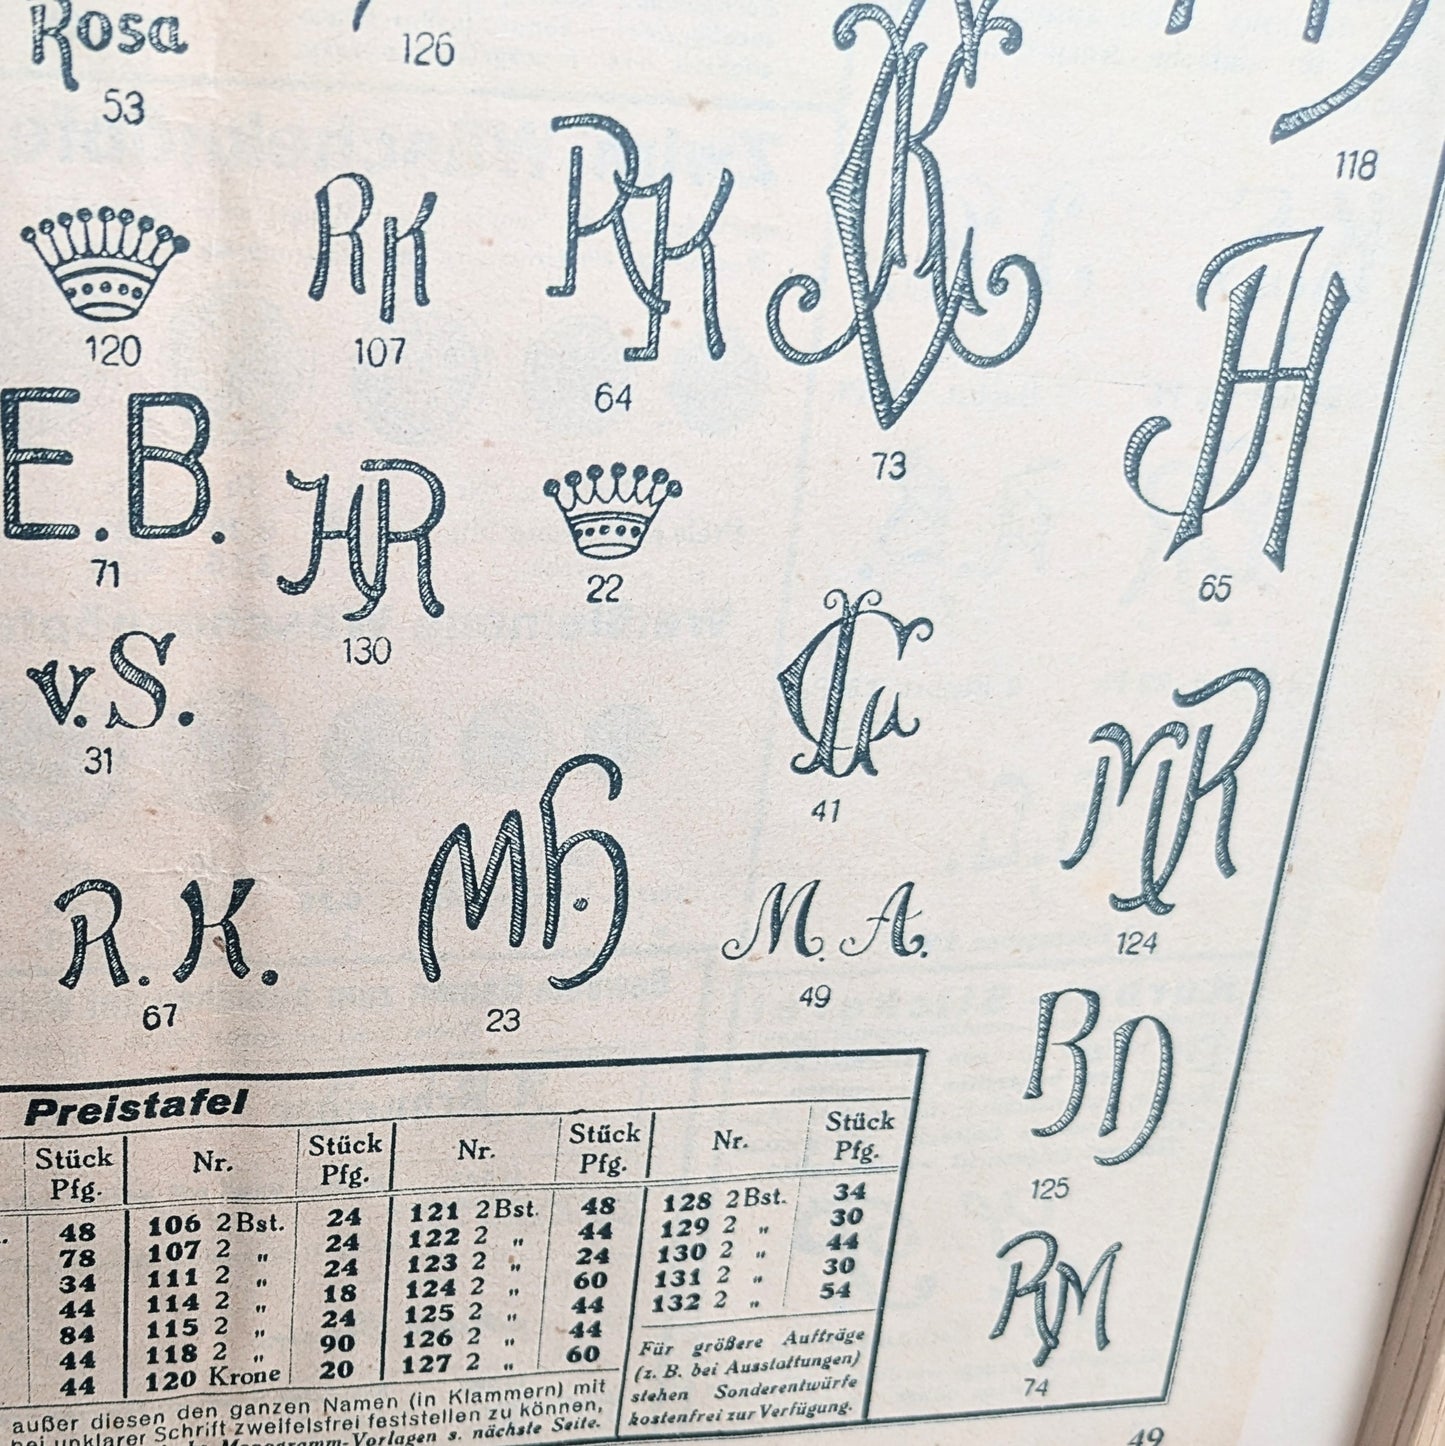 Rosa
53
126
118
120
RK
107
RK
64
73
JH
65
E.B.
71
HR
130
22
v.S.
31
41
MR
124
R.K.
67
MH
23
M. A.
49
BD
125
RM
74
Preistafel
Stück Pfg. Nr. Stück Pfg. Nr. Stück Pfg. Nr. Stück Pfg.
48 106 2 Bst. 24 121 2 Bst. 48 128 2 Bst. 34
78 107 2 „ 24 122 2 „ 44 129 2 „ 30
34 111 2 „ 24 123 2 „ 24 130 2 „ 44
44 114 2 „ 18 124 2 „ 60 131 2 „ 30
84 115 2 „ 24 125 2 „ 44 132 2 „ 54
44 118 2 „ 90 126 2 „ 44
44 120 Krone 20 127 2 „ 60
Für größere Aufträge
(z. B. bei Ausstattungen)
stehen Sonderentwürfe
kostenfrei zur Verfügung.
außer diesen den ganzen Namen (in Klammern) mit
bei unklarer Schrift zweifelsfrei feststellen zu können,
Monogramm-Vorlagen s. nächste Seite.
49